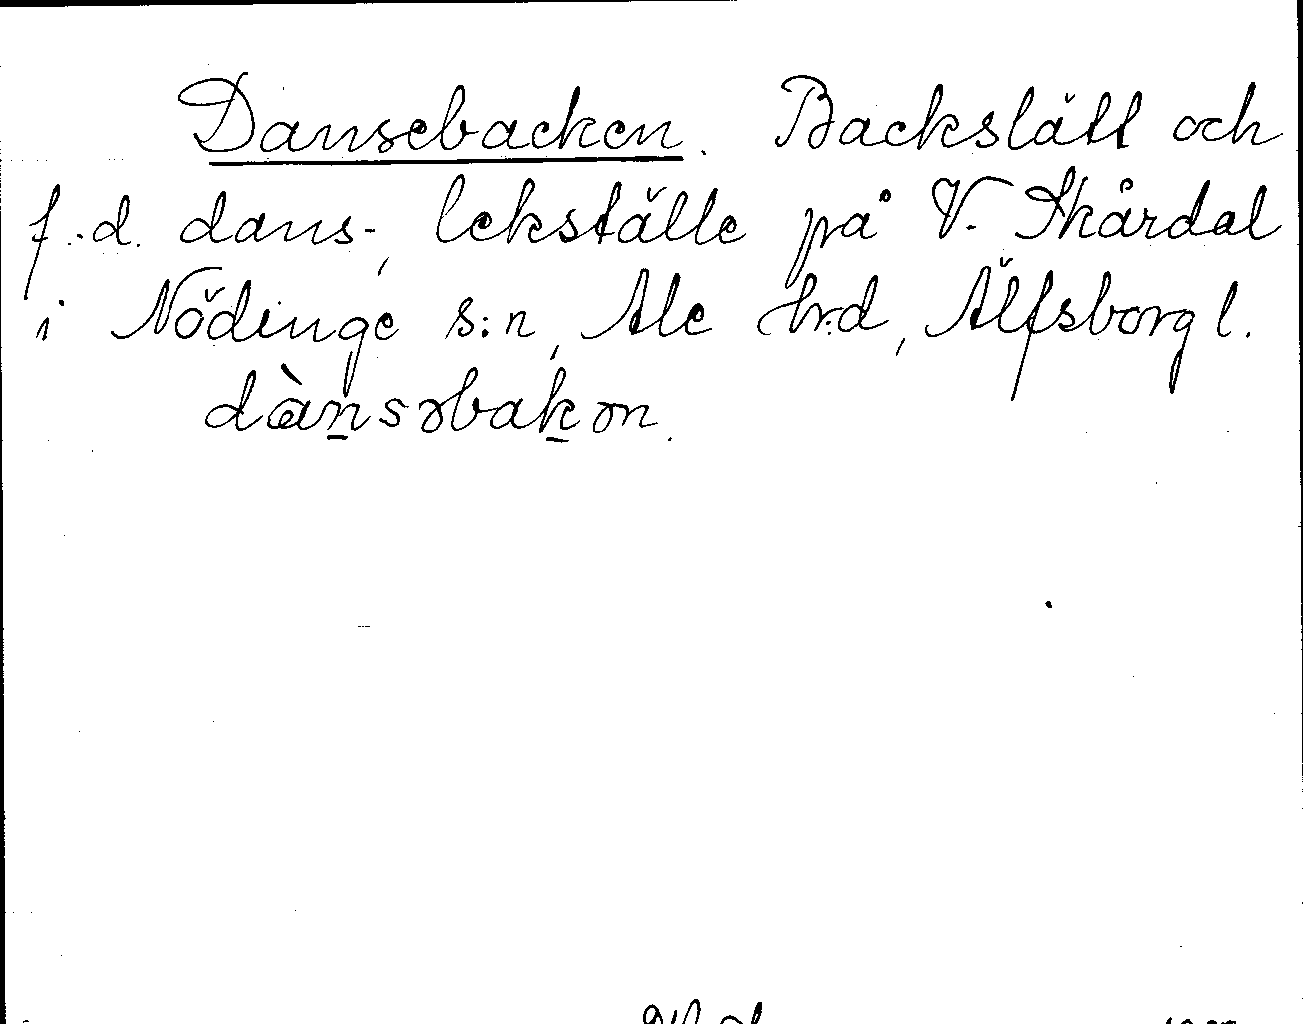 Dansebacken. Backslätt och
f.d. dans-, lekställe på V. Skårdal
i Nödinge s:n, Ale hrd, Älfsborg l.
dànsəbakən.